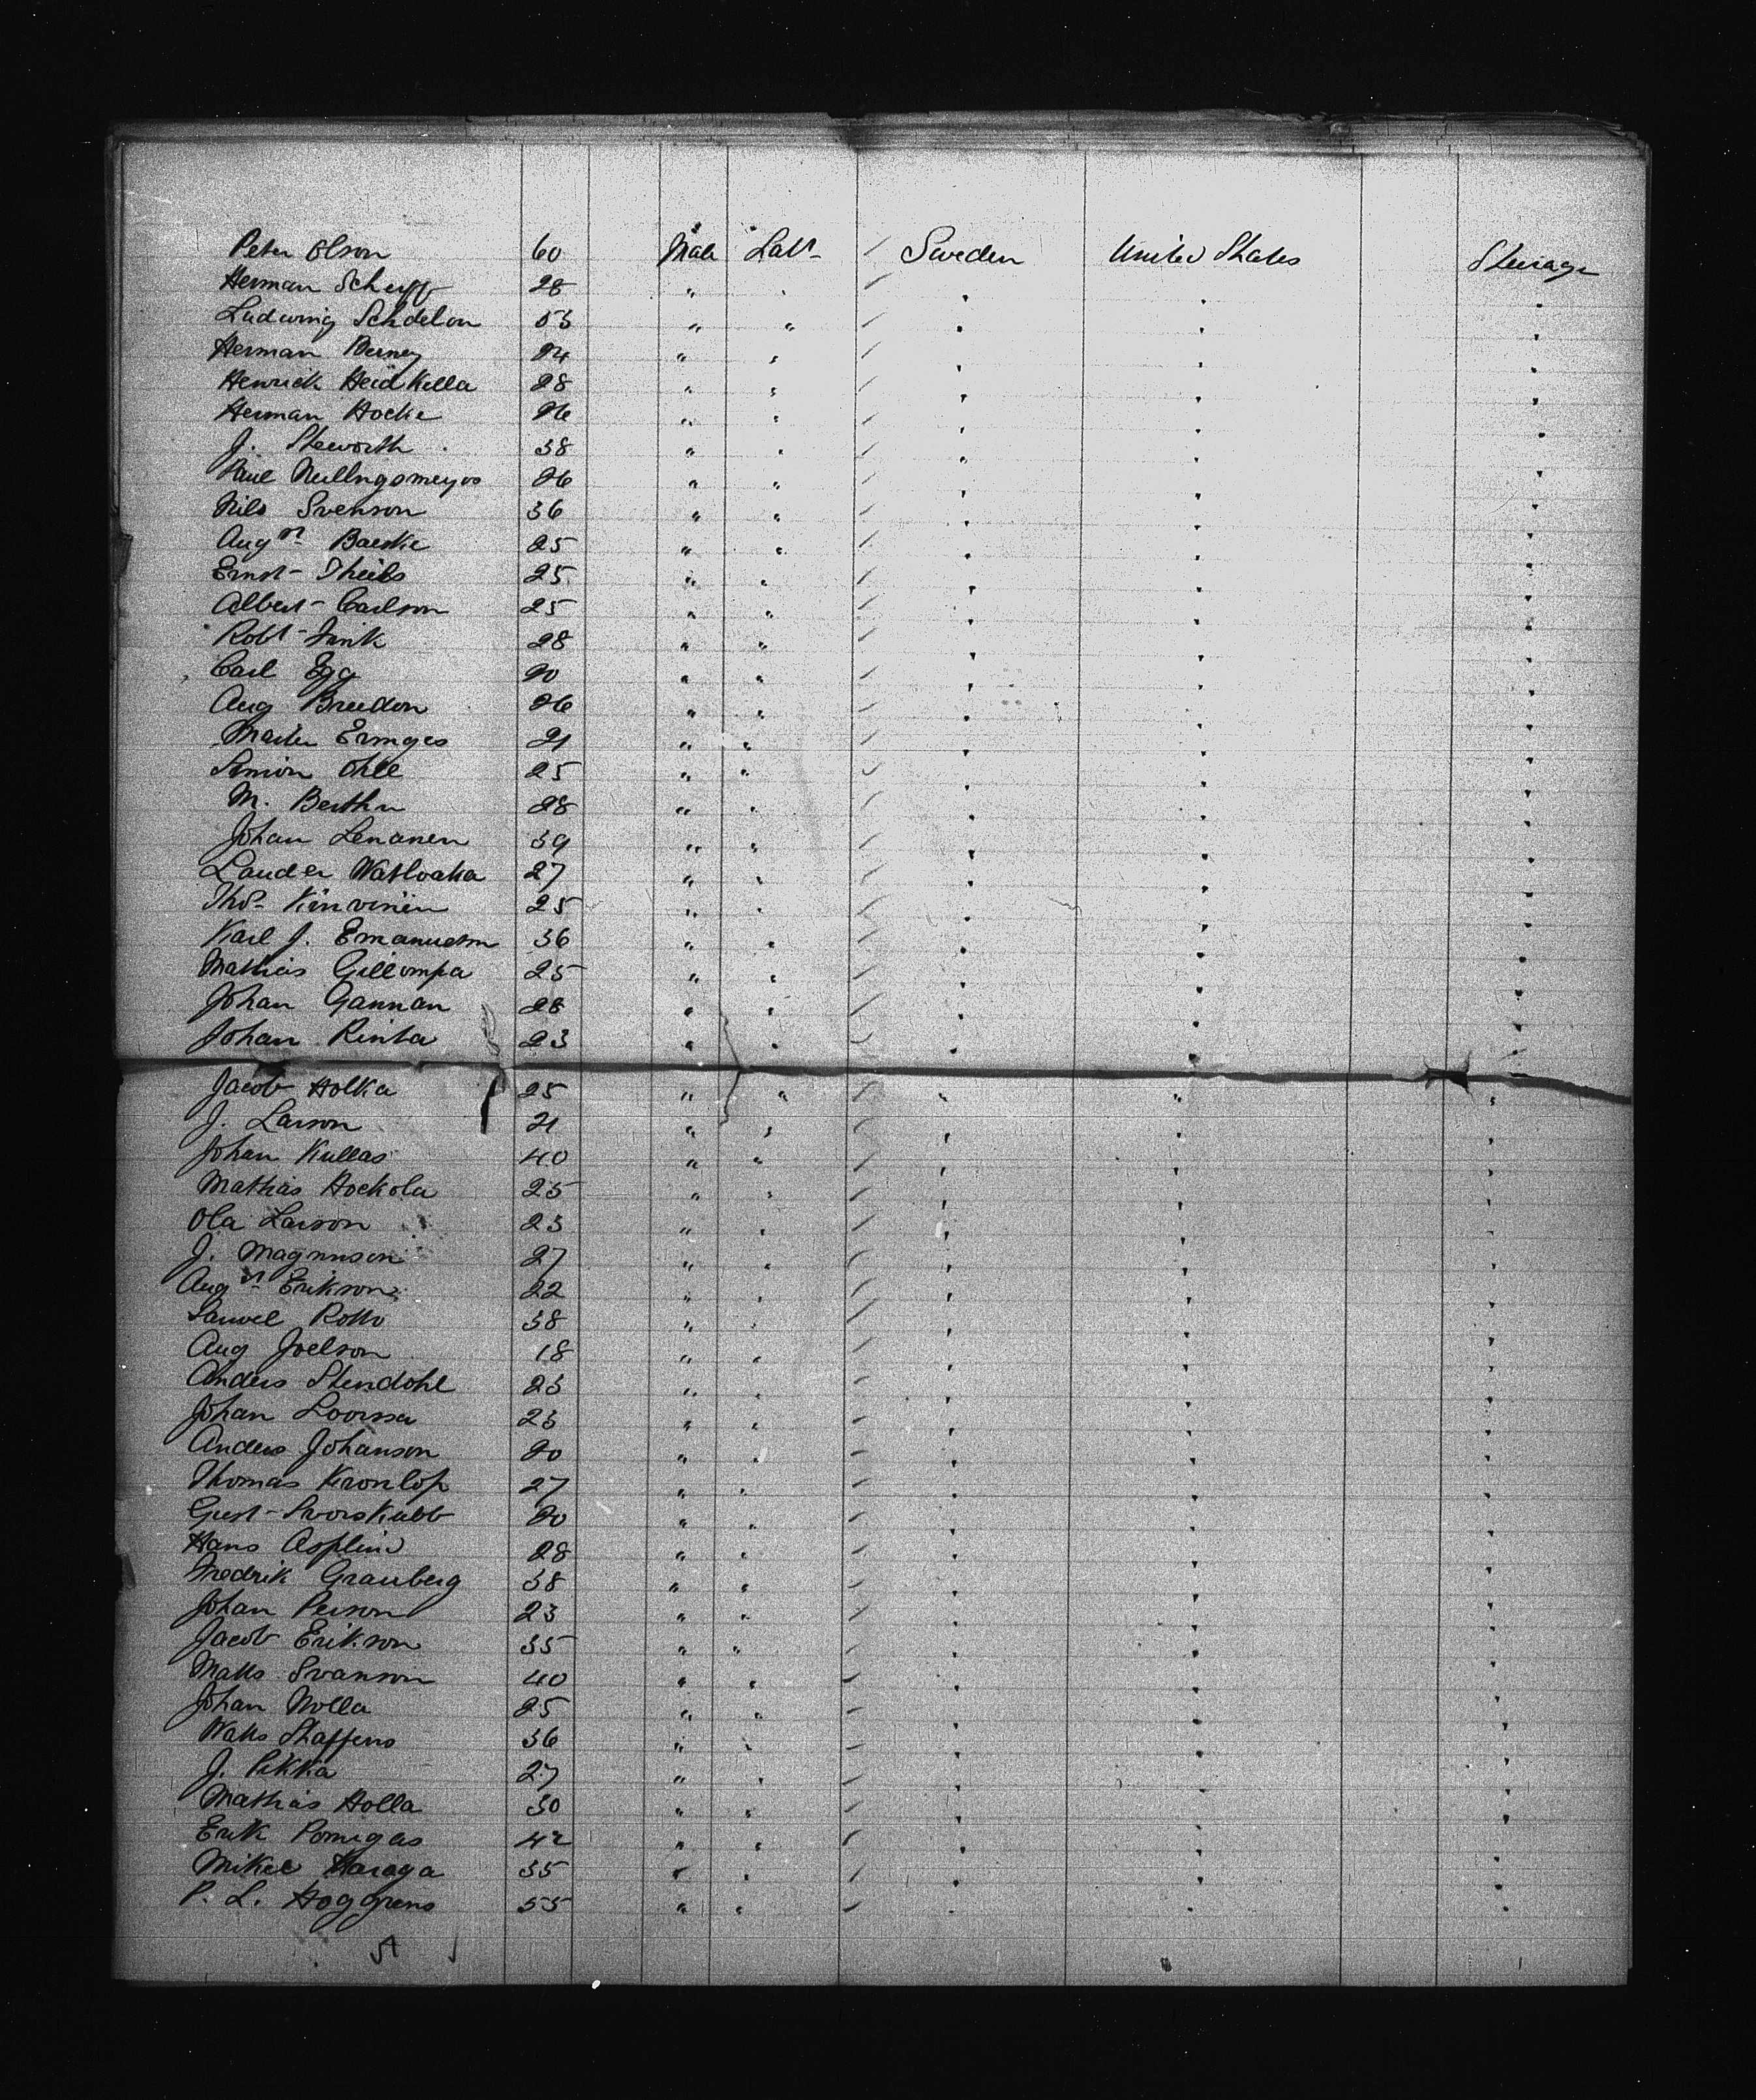 Peter Olson 60 Male Labr Sweden United States Steerage
Herman Scheff 28 " " " " "
Ludwig Schdelon 53 " " " " "
Herman Berney 24 " " " " "
Henrick Heidkella 28 " " " " "
Herman Hocke 26 " " " " "
J. Steworth 38 " " " " "
Paul 26 " " " " "
Nils Svenson 36 " " " " "
Augst Baeske 25 " " " " "
Ernst Theils 25 " " " " "
Albert Carlson 25 " " " " "
Robt Fink 28 " " " " "
Carl Egg 20 " " " " "
Aug Bredon 26 " " " " "
Martin Ermges 21 " " " " "
Simon Ohle 25 " " " " "
M. Berthn 28 " " " " "
Johan Lenanen 39 " " " " "
Lauder Watloaka 27 " " " " "
Thos Kinvinen 25 " " " " "
Karl J. Emanuelsn 36 " " " " "
Mathias Gillompa 25 " " " " "
Johan Gannan 28 " " " " "
Johan Rinta 23 " " " " "
Jacob Holka 25 " " " " "
J. Larson 21 " " " " "
Johan Kullas 40 " " " " "
Mathias Hockola 25 " " " " "
Ola Larson 23 " " " " "
J. Magnuson 27 " " " " "
Augst Erikson 22 " " " " "
Samuel Rotto 38 " " " " "
Aug Joelson 18 " " " " "
Anders Stendohl 23 " " " " "
Johan Loorssa 23 " " " " "
Anders Johanson 20 " " " " "
Thomas Kronlop 27 " " " " "
Gust Svorskubb 20 " " " " "
Hans Asplind 28 " " " " "
Fredrik Granberg 38 " " " " "
Johan Person 23 " " " " "
Jacob Erikson 35 " " " " "
Matts Svanson 40 " " " " "
Johan Nolla 25 " " " " "
Matts Staffens 36 " " " " "
J. Pikka 27 " " " " "
Mathias Holla 30 " " " " "
Erik Pomigas 42 " " " " "
Mikel Haraga 35 " " " " "
P. L. Hoggrens 55 " " " " "
51